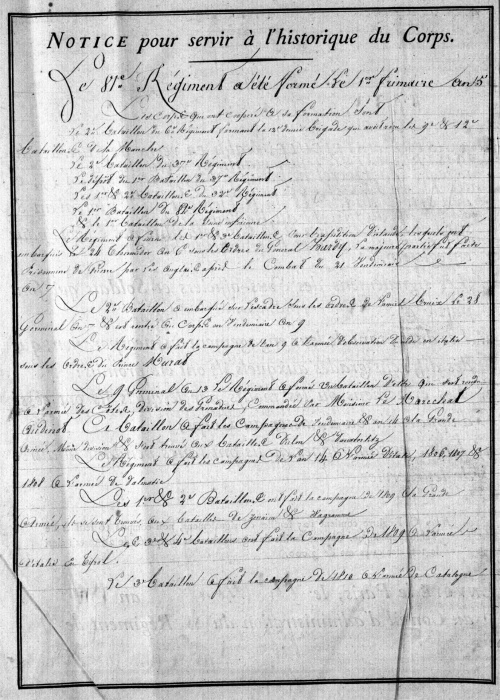 NOTICE pour servir à l'historique du Corps.
Le 81.e Régiment a été formé Le 1er frimaire an 5
Les Corps qui ont coopéré a sa formation Sont
Le 2e Bataillon du 6e Régiment formant la 13e demie Brigade avec les 9e & 12e
Bataillons de la Manche
Le 2e Bataillon du Régiment
Le Dépôt du 1er Bataillon du 37me Régiment
Les 1er & 2e Bataillons du 32e Régiment
Le 1er Bataillon du 82me Régiment
& le 1er Bataillon de la Seine inférieure
Le Régiment a fourni le 1er & 3e Bataillons Pour l'expédition d'Irlande
embarqués le 28 thermidor an 6 sous les Ordres du Général Hardy. La majeure partie fut faite
Prisonniers de Guerre par les Anglais après le Combat du 21 Vendemiaire
an 7
Le 2e Bataillon a embarqué sur l'escadre sous les ordres de l'amiral Bruix Le 28
Germinal an 7 & est rentré au Corps en Vendemiaire an 9
Le Régiment a fait la campagne de l'an 9 à l'armée d'observation du midi en italie
sous les ordres du Prince Murat
Le 9 Germinal an 13 le Régiment a formé un bataillon d'élite qui s'est rendu
à l'armée des Côtes, division des Grenadiers, Commandée Par Monsieur Le Marechal
Oudinot. Ce Bataillon a fait les Campagnes de Vendemiaire an 14 à la Grande
armée, Même division & s'est trouvé aux Batailles d'Ulm & d'Austerlitz
Le Régiment a fait les campagnes de l'an 14 à l'armée d'Italie, 1806, 1807 &
1808 à l'armée de Dalmatie
Les 1er & 2e Bataillons ont fait la campagne de 1809 à la Grande
Armée, ils se sont trouvés aux Batailles de &  Wagramm
Les 3e & 4e Bataillons ont fait la Campagne de 1809 à l'armée
d'italie en tyrol
Le 3e Bataillon a fait la campagne de 1810 à l'armée de Catalogne